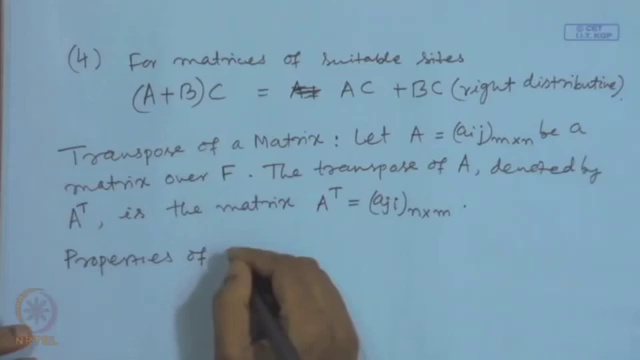 © CET
I.I.T. KGP
(4) For matrices of suitable sites
(A+B)C = AC + BC (right distributive).
Transpose of a Matrix : Let A = (aij)m×n be a
matrix over F. The transpose of A, denoted by
A^T, is the matrix A^T = (aji)n×m.
Properties of
NPTEL